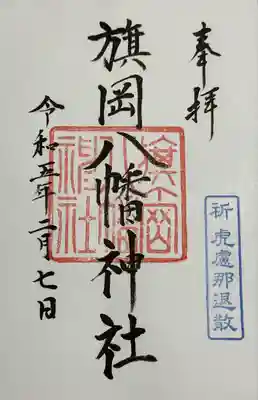 奉拝
祈 虎盧那退散
旗岡八幡神社
旗岡
八幡
神社
令和五年二月七日